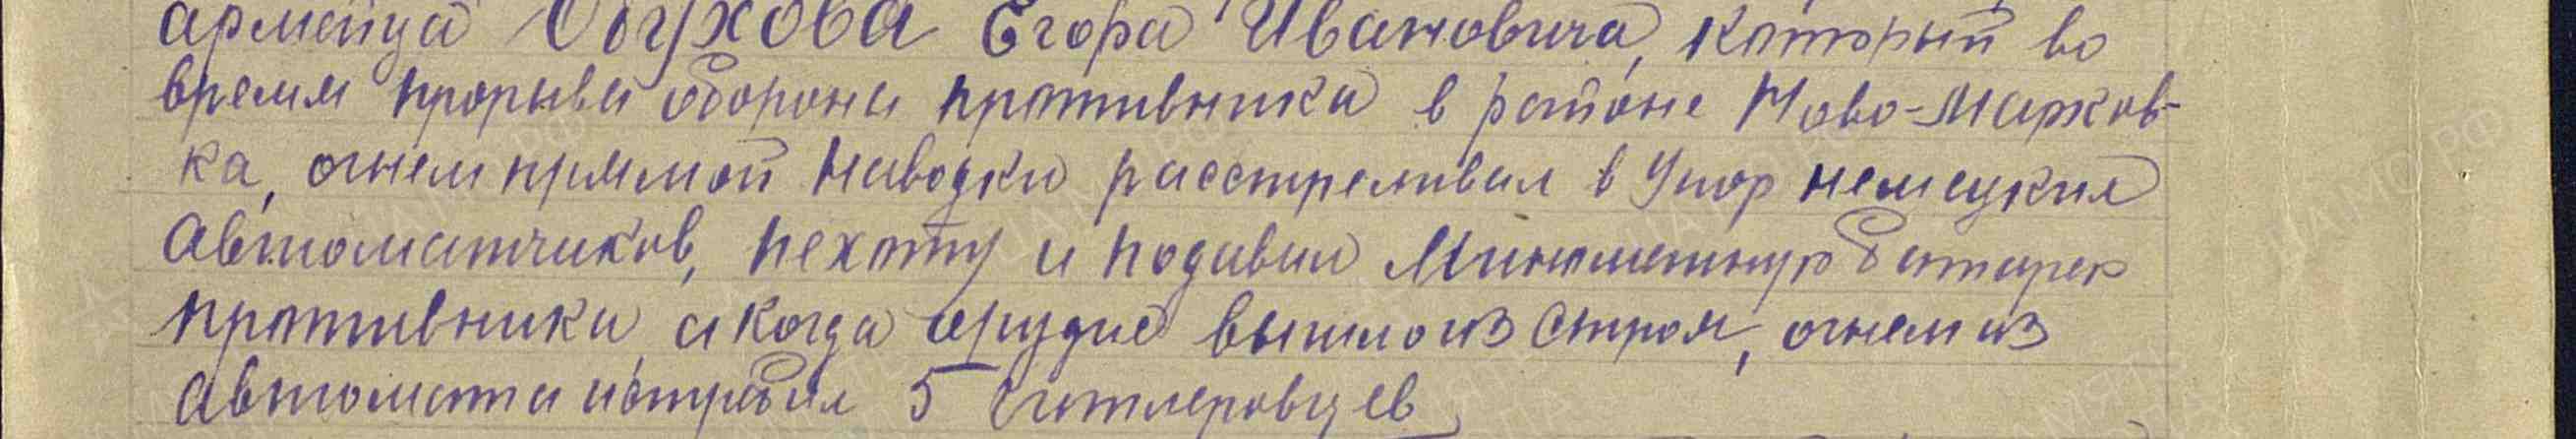 армейца Обухова Егора Ивановича, который во
время прорыва обороны противника в районе Ново-Марков-
ка, огнем прямой наводки расстреливал в упор немецких
автоматчиков, пехоту и подавил Минометную батарею
противника, а когда орудие вышло из строя, огнем из
автомата истребил 5 гитлеровцев